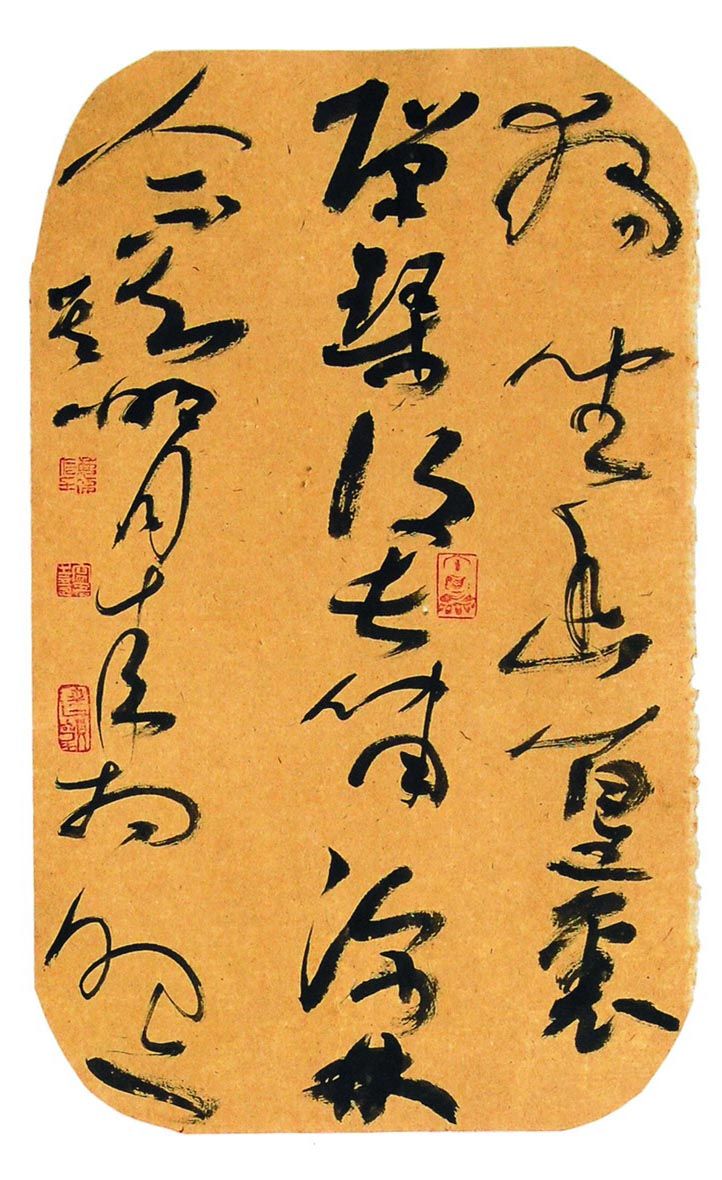 獨坐幽篁裏
彈琴復長嘯深林
人不知明月來相照